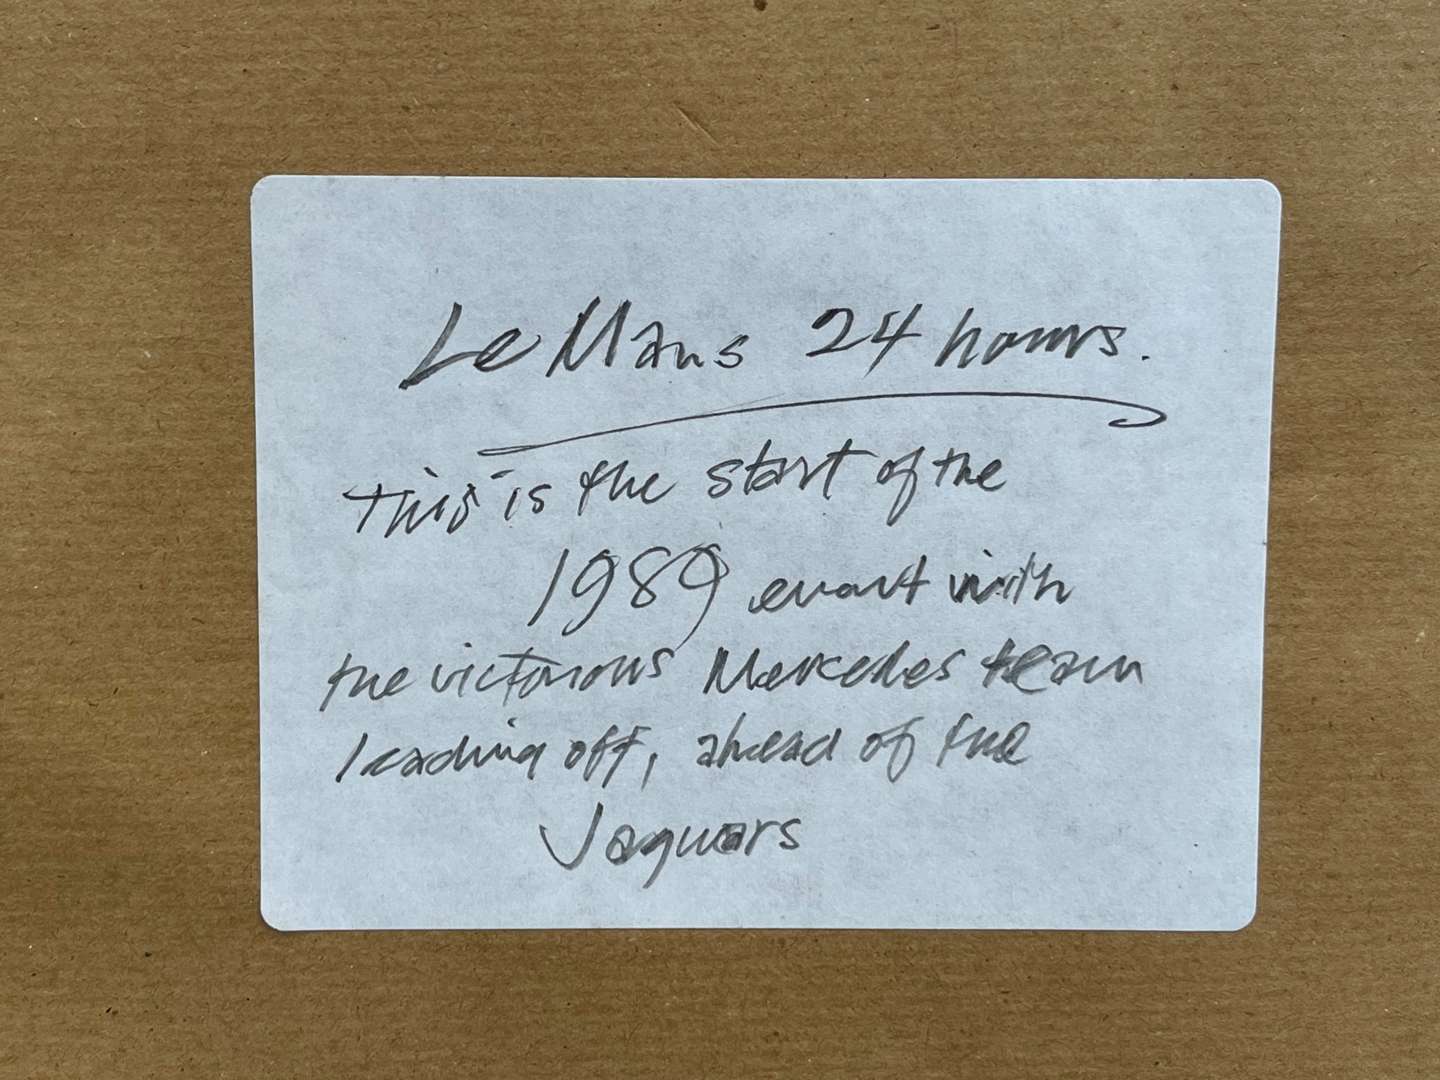 Le Mans 24 hours.
This is the start of the
1989 event with
the victorious Mercedes team
leading off, ahead of the
Jaguars